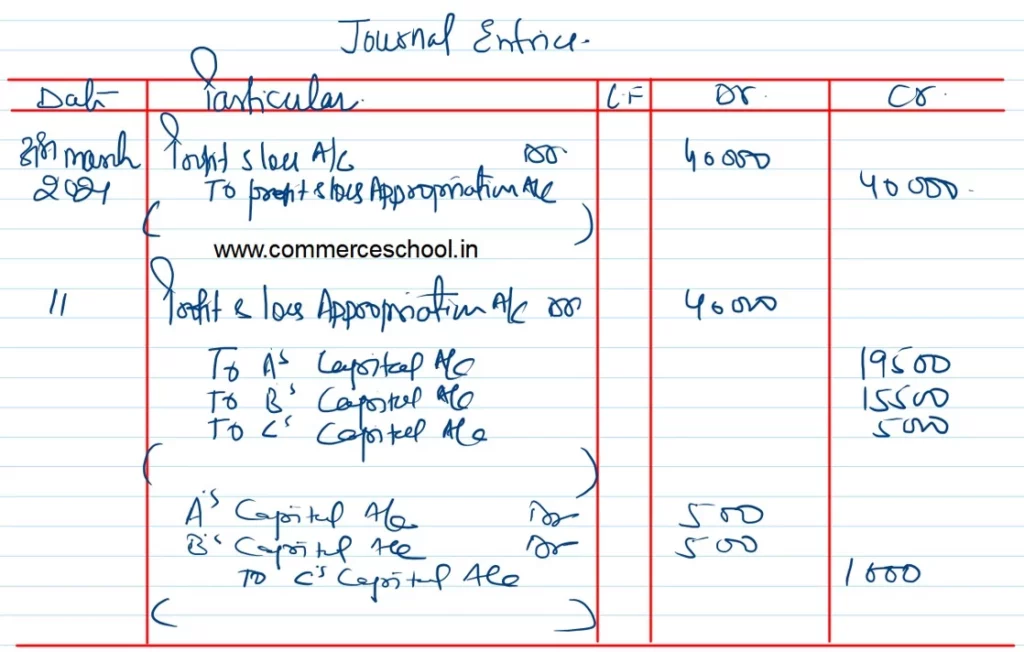 Journal Entrice.
Date Particular. L.F Dr. Cr.
31 march Profit & loss A/c Dr 40000
2021 To profit & loss Appropriation A/c 40000.
( )
www.commerceschool.in
11 Profit & loss Appropriation A/c Dr 40000
To A's Capital A/c 19500
To B's Capital A/c 15500
To C's Capital A/c 5000
( )
A's Capital A/c Dr 500
B's Capital A/c Dr 500
To C's Capital A/c 1000
( )